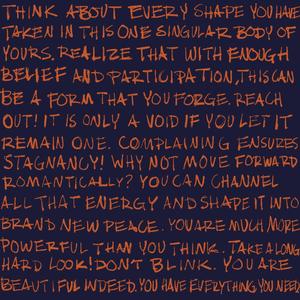 THINK ABOUT EVERY SHAPE YOU HAVE
TAKEN IN THIS ONE SINGULAR BODY OF
YOURS. REALIZE THAT WITH ENOUGH
BELIEF AND PARTICIPATION, THIS CAN
BE A FORM THAT YOU FORGE. REACH
OUT! IT IS ONLY A VOID IF YOU LET IT
REMAIN ONE. COMPLAINING ENSURES
STAGNANCY! WHY NOT MOVE FORWARD
ROMANTICALLY? YOU CAN CHANNEL
ALL THAT ENERGY AND SHAPE IT INTO
BRAND NEW PEACE. YOU ARE MUCH MORE
POWERFUL THAN YOU THINK. TAKE A LONG
HARD LOOK! DON'T BLINK. YOU ARE
BEAUTIFUL INDEED. YOU HAVE EVERYTHING YOU NEED.